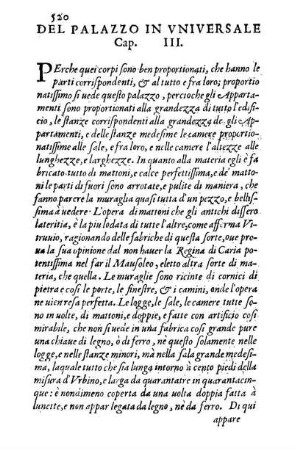 520
DEL PALAZZO IN VNIVERSALE
Cap. III.
PErche quei corpi sono ben proportionati, che hanno le
parti corrispondenti, & al tutto e fra loro; proportio
natissimo si uede questo palazzo, percioche gli Apparta-
menti sono proportionati alla grandezza di tutto l'edifi-
cio, le stanze corrispondenti alla grandezza de gli Ap-
partamenti, e delle stanze medesime le camere proportio-
natissime alle sale, e fra loro, e nelle camere l'altezze alle
lunghezze, e larghezze. In quanto alla materia egli è fa
bricato tutto di mattoni, e calce perfettissima, e de' matto-
ni le parti di fuori sono arrotate, e pulite di maniera, che
fanno parere la muraglia quasi tutta d'un pezzo, e bellis-
sima à uedere. L'opera di mattoni che gli antichi differo
lateritia, è la piu lodata di tutte l'altre, come afferma Vi-
truuio, ragionando delle fabriche di questa sorte, oue pro-
ua la sua opinione dal non hauer la Regina di Caria po-
tentissima nel far il Mausoleo, eletto altra sorte di ma-
teria, che quella. Le muraglie sono ricinte di cornici di
pietra e cosi le porte, le finestre, & i camini, onde l'opera
ne uien resa perfetta. Le logge, le sale, le camere tutte so-
no in uolte, di mattoni, e doppie, e fatte con artificio cosi
mirabile, che non si uede in una fabrica cosi grande pure
una chiaue di legno, ò di ferro, nè questo solamente nelle
logge, e nelle stanze minori, mà nella sala grande medesi-
ma, laquale tutto che sia lunga intorno à cento piedi della
misura d'Vrbino, e larga da quarantatre in quarantacin-
que: è nondimeno coperta da una uolta doppia fatta à
lunette, e non appar legata da legno, nè da ferro. Di qui
appare